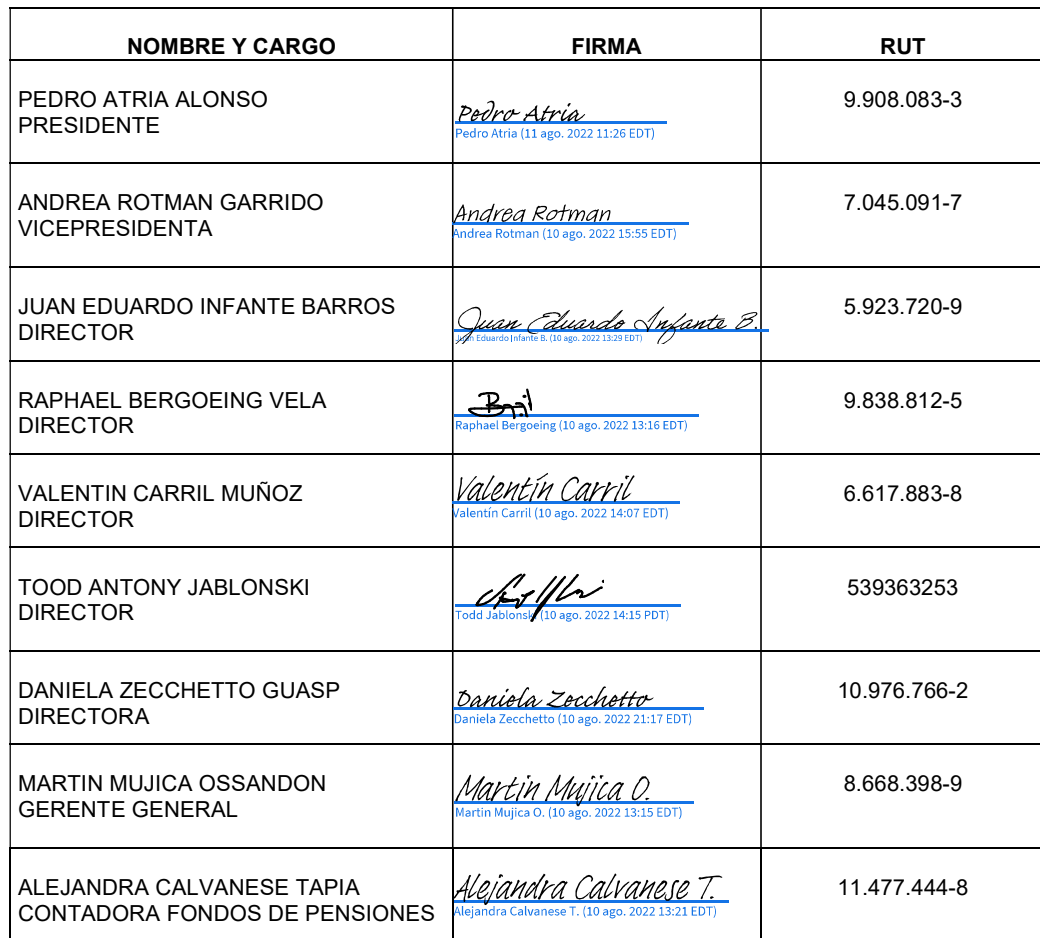 NOMBRE Y CARGO FIRMA RUT
PEDRO ATRIA ALONSO
PRESIDENTE
Pedro Atria
Pedro Atria (11 ago. 2022 11:26 EDT)
9.908.083-3
ANDREA ROTMAN GARRIDO
VICEPRESIDENTA
Andrea Rotman
Andrea Rotman (10 ago. 2022 15:55 EDT)
7.045.091-7
JUAN EDUARDO INFANTE BARROS
DIRECTOR
Juan Eduardo Infante B.
Juan Eduardo Infante B. (10 ago. 2022 13:29 EDT)
5.923.720-9
RAPHAEL BERGOEING VELA
DIRECTOR
Raphael Bergoeing (10 ago. 2022 13:16 EDT)
9.838.812-5
VALENTIN CARRIL MUÑOZ
DIRECTOR
Valentín Carril
Valentín Carril (10 ago. 2022 14:07 EDT)
6.617.883-8
TOOD ANTONY JABLONSKI
DIRECTOR
Todd Jablonski (10 ago. 2022 14:15 PDT)
539363253
DANIELA ZECCHETTO GUASP
DIRECTORA
Daniela Zecchetto
Daniela Zecchetto (10 ago. 2022 21:17 EDT)
10.976.766-2
MARTIN MUJICA OSSANDON
GERENTE GENERAL
Martin Mujica O.
Martin Mujica O. (10 ago. 2022 13:15 EDT)
8.668.398-9
ALEJANDRA CALVANESE TAPIA
CONTADORA FONDOS DE PENSIONES
Alejandra Calvanese T.
Alejandra Calvanese T. (10 ago. 2022 13:21 EDT)
11.477.444-8